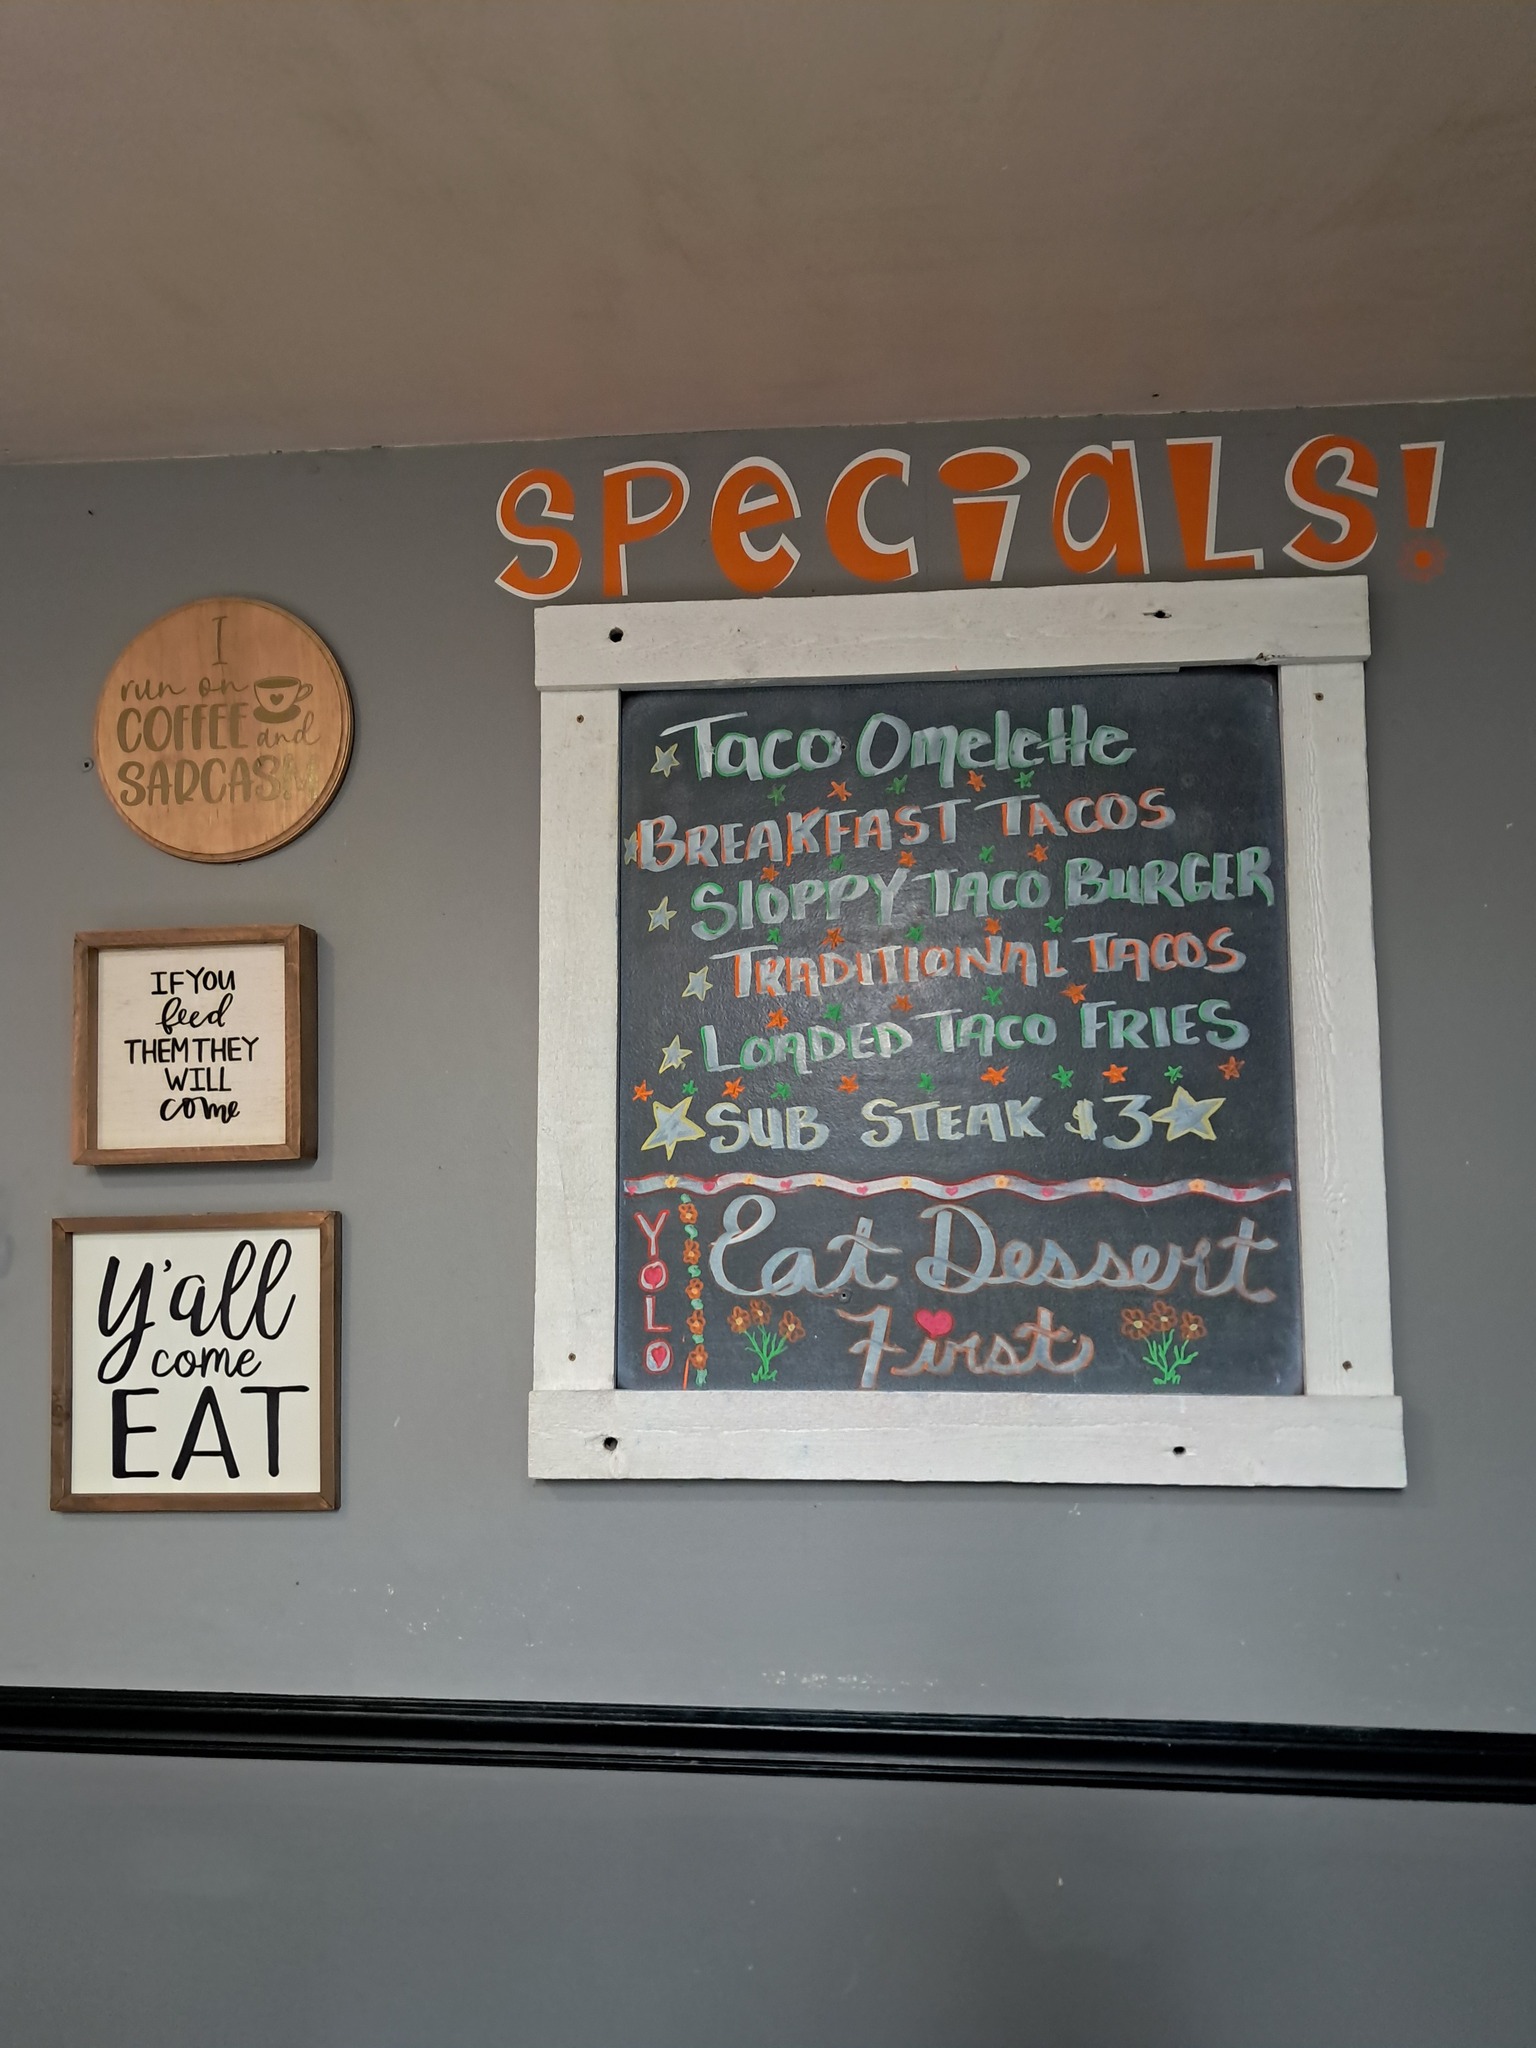 SPeCiaLS!
I
run on
COFFEE and
SARCASM
IF YOU
feed
THEM THEY
WILL
come
Y'all
come
EAT
Taco Omelette
BREAKFAST TACOS
SlOPPY TACO BURGER
TRADITIONAL TACOS
LOADED TACO FRIES
SUB STEAK $3
YOLO
Eat Dessert
First